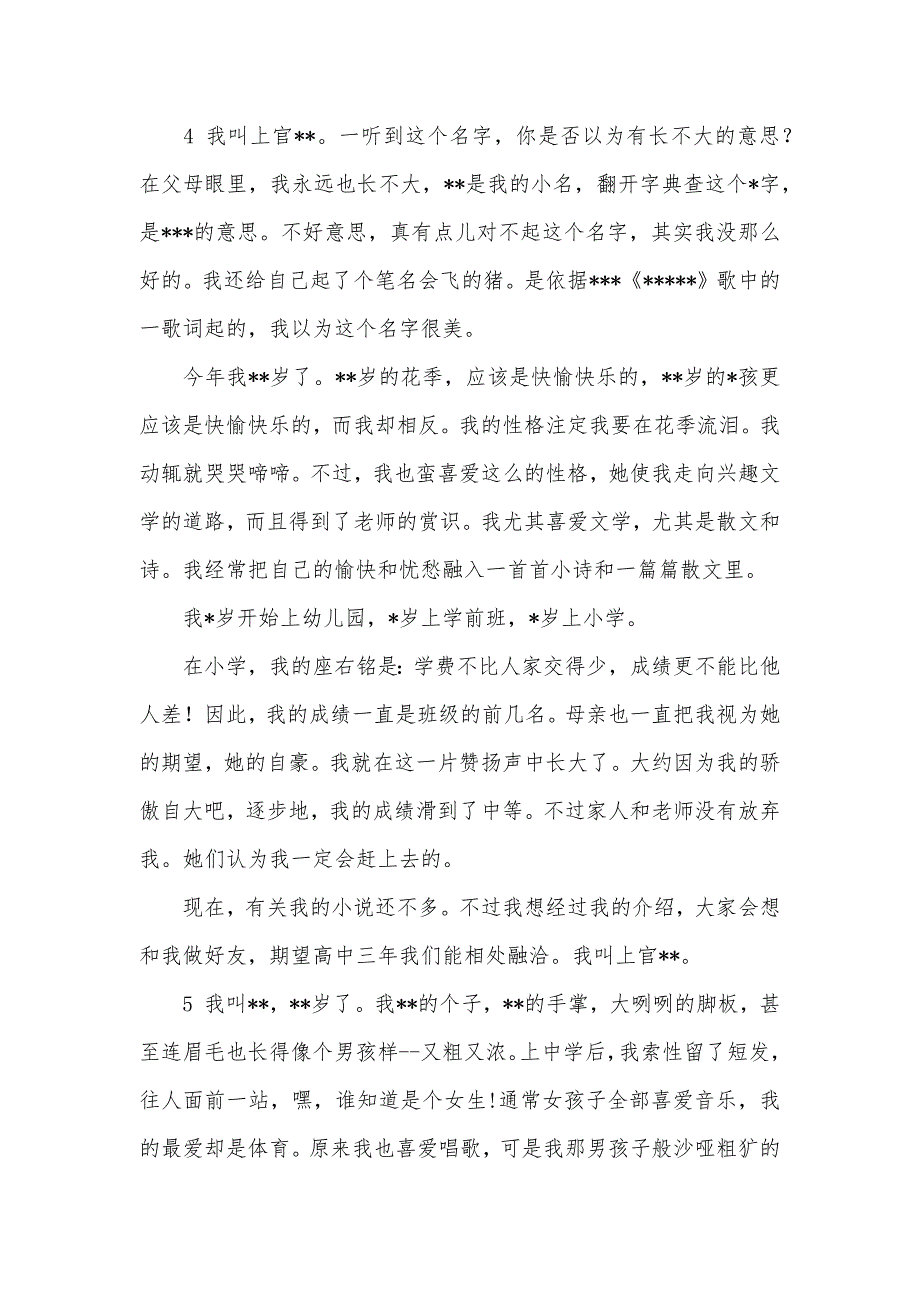 4 我叫上官**。一听到这个名字，你是否以为有长不大的意思？
在父母眼里，我永远也长不大，**是我的小名，翻开字典查这个*字，
是***的意思。不好意思，真有点儿对不起这个名字，其实我没那么
好的。我还给自己起了个笔名会飞的猪。是依据***《*****》歌中的
一歌词起的，我以为这个名字很美。
今年我**岁了。**岁的花季，应该是快愉快乐的，**岁的*孩更
应该是快愉快乐的，而我却相反。我的性格注定我要在花季流泪。我
动辄就哭哭啼啼。不过，我也蛮喜爱这么的性格，她使我走向兴趣文
学的道路，而且得到了老师的赏识。我尤其喜爱文学，尤其是散文和
诗。我经常把自己的愉快和忧愁融入一首首小诗和一篇篇散文里。
我*岁开始上幼儿园，*岁上学前班，*岁上小学。
在小学，我的座右铭是：学费不比人家交得少，成绩更不能比他
人差！因此，我的成绩一直是班级的前几名。母亲也一直把我视为她
的期望，她的自豪。我就在这一片赞扬声中长大了。大约因为我的骄
傲自大吧，逐步地，我的成绩滑到了中等。不过家人和老师没有放弃
我。她们认为我一定会赶上去的。
现在，有关我的小说还不多。不过我想经过我的介绍，大家会想
和我做好友，期望高中三年我们能相处融洽。我叫上官**。
5 我叫**，**岁了。我**的个子，**的手掌，大咧咧的脚板，甚
至连眉毛也长得像个男孩样--又粗又浓。上中学后，我索性留了短发，
往人面前一站，嘿，谁知道是个女生!通常女孩子全部喜爱音乐，我
的最爱却是体育。原来我也喜爱唱歌，可是我那男孩子般沙哑粗犷的